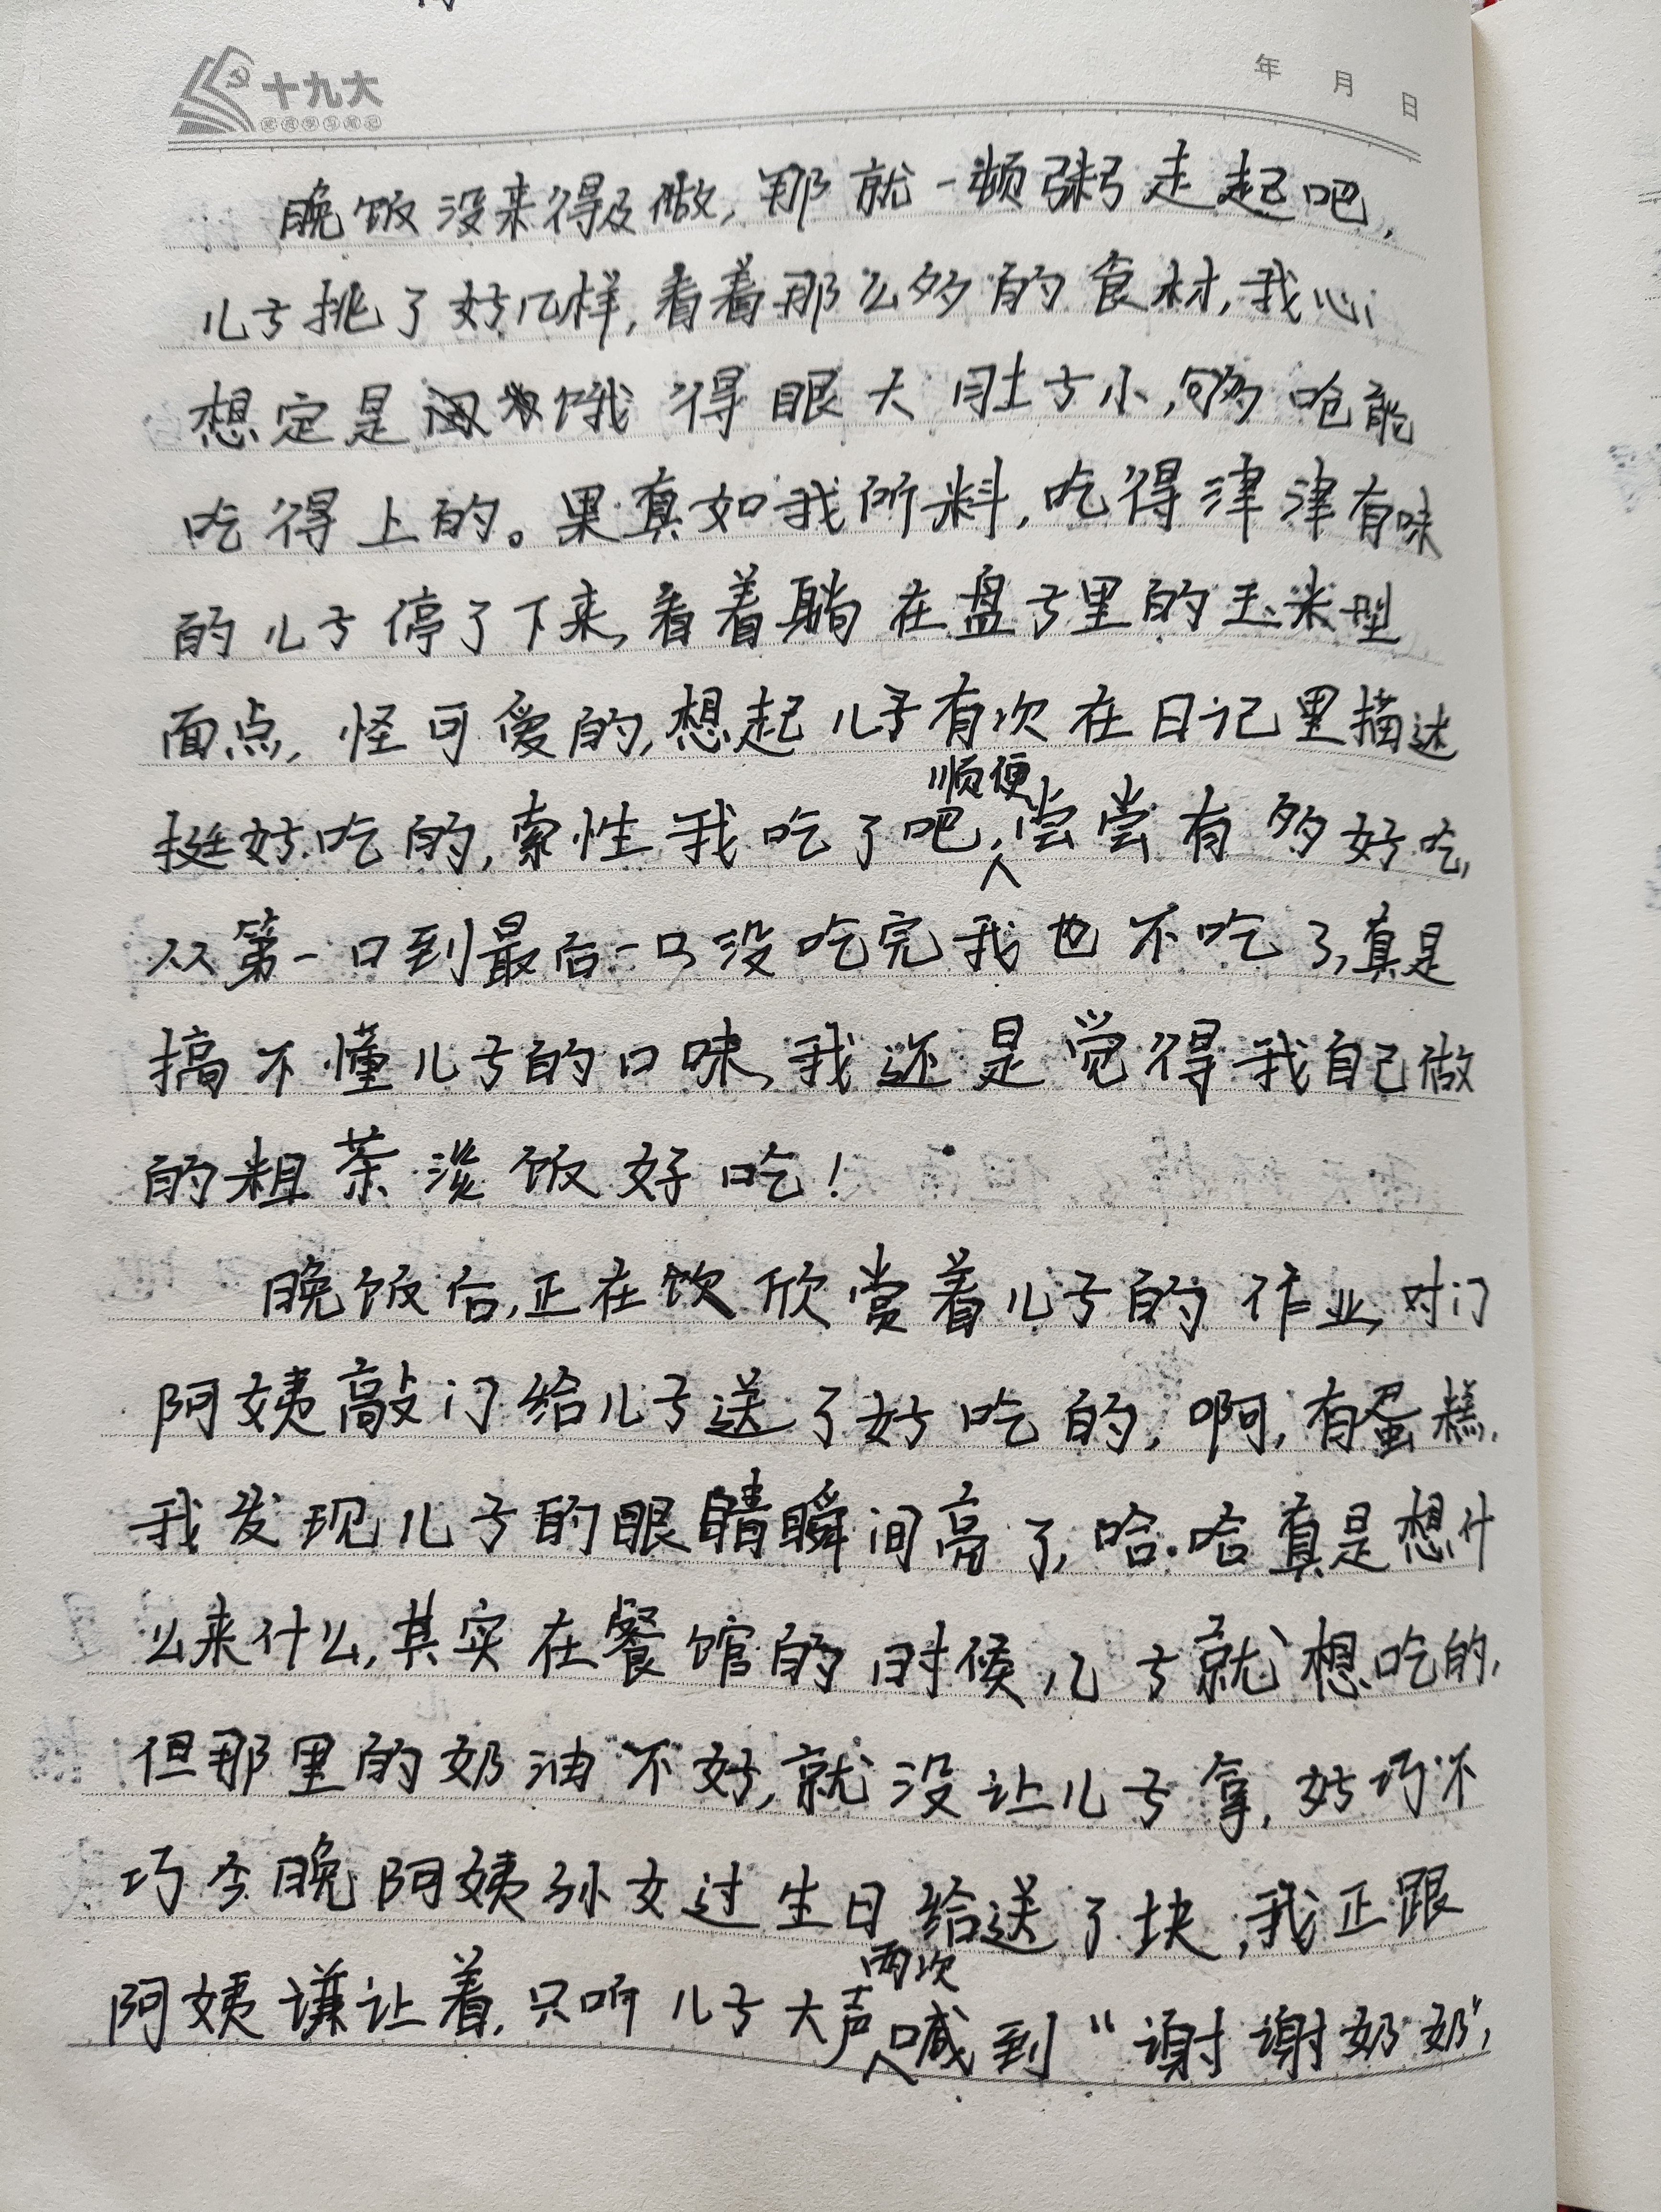 十九大
党性学习笔记
年 月 日
晚饭没来得及做,那就一顿粥走起吧,
儿子挑了好几样,看着那么多的食材,我心
想定是饿得眼大肚子小,够呛能
吃得上的。果真如我所料,吃得津津有味
的儿子停了下来,看着躺在盘子里的玉米型
面点,怪可爱的,想起儿子有次在日记里描述
挺好吃的,索性我吃了吧,顺便尝尝有多好吃,
从第一口到最后一口没吃完我也不吃了,真是
搞不懂儿子的口味,我还是觉得我自己做
的粗茶淡饭好吃!
晚饭后,正在饮欣赏着儿子的作业,对门
阿姨敲门给儿子送了好吃的,啊,有蛋糕,
我发现儿子的眼睛瞬间亮了,哈哈真是想什
么来什么,其实在餐馆的时候儿子就想吃的,
但那里的奶油不好,就没让儿子拿,好巧不
巧今晚阿姨孙女过生日给送了块,我正跟
阿姨谦让着,只听儿子大声两次喊到“谢谢奶奶”,